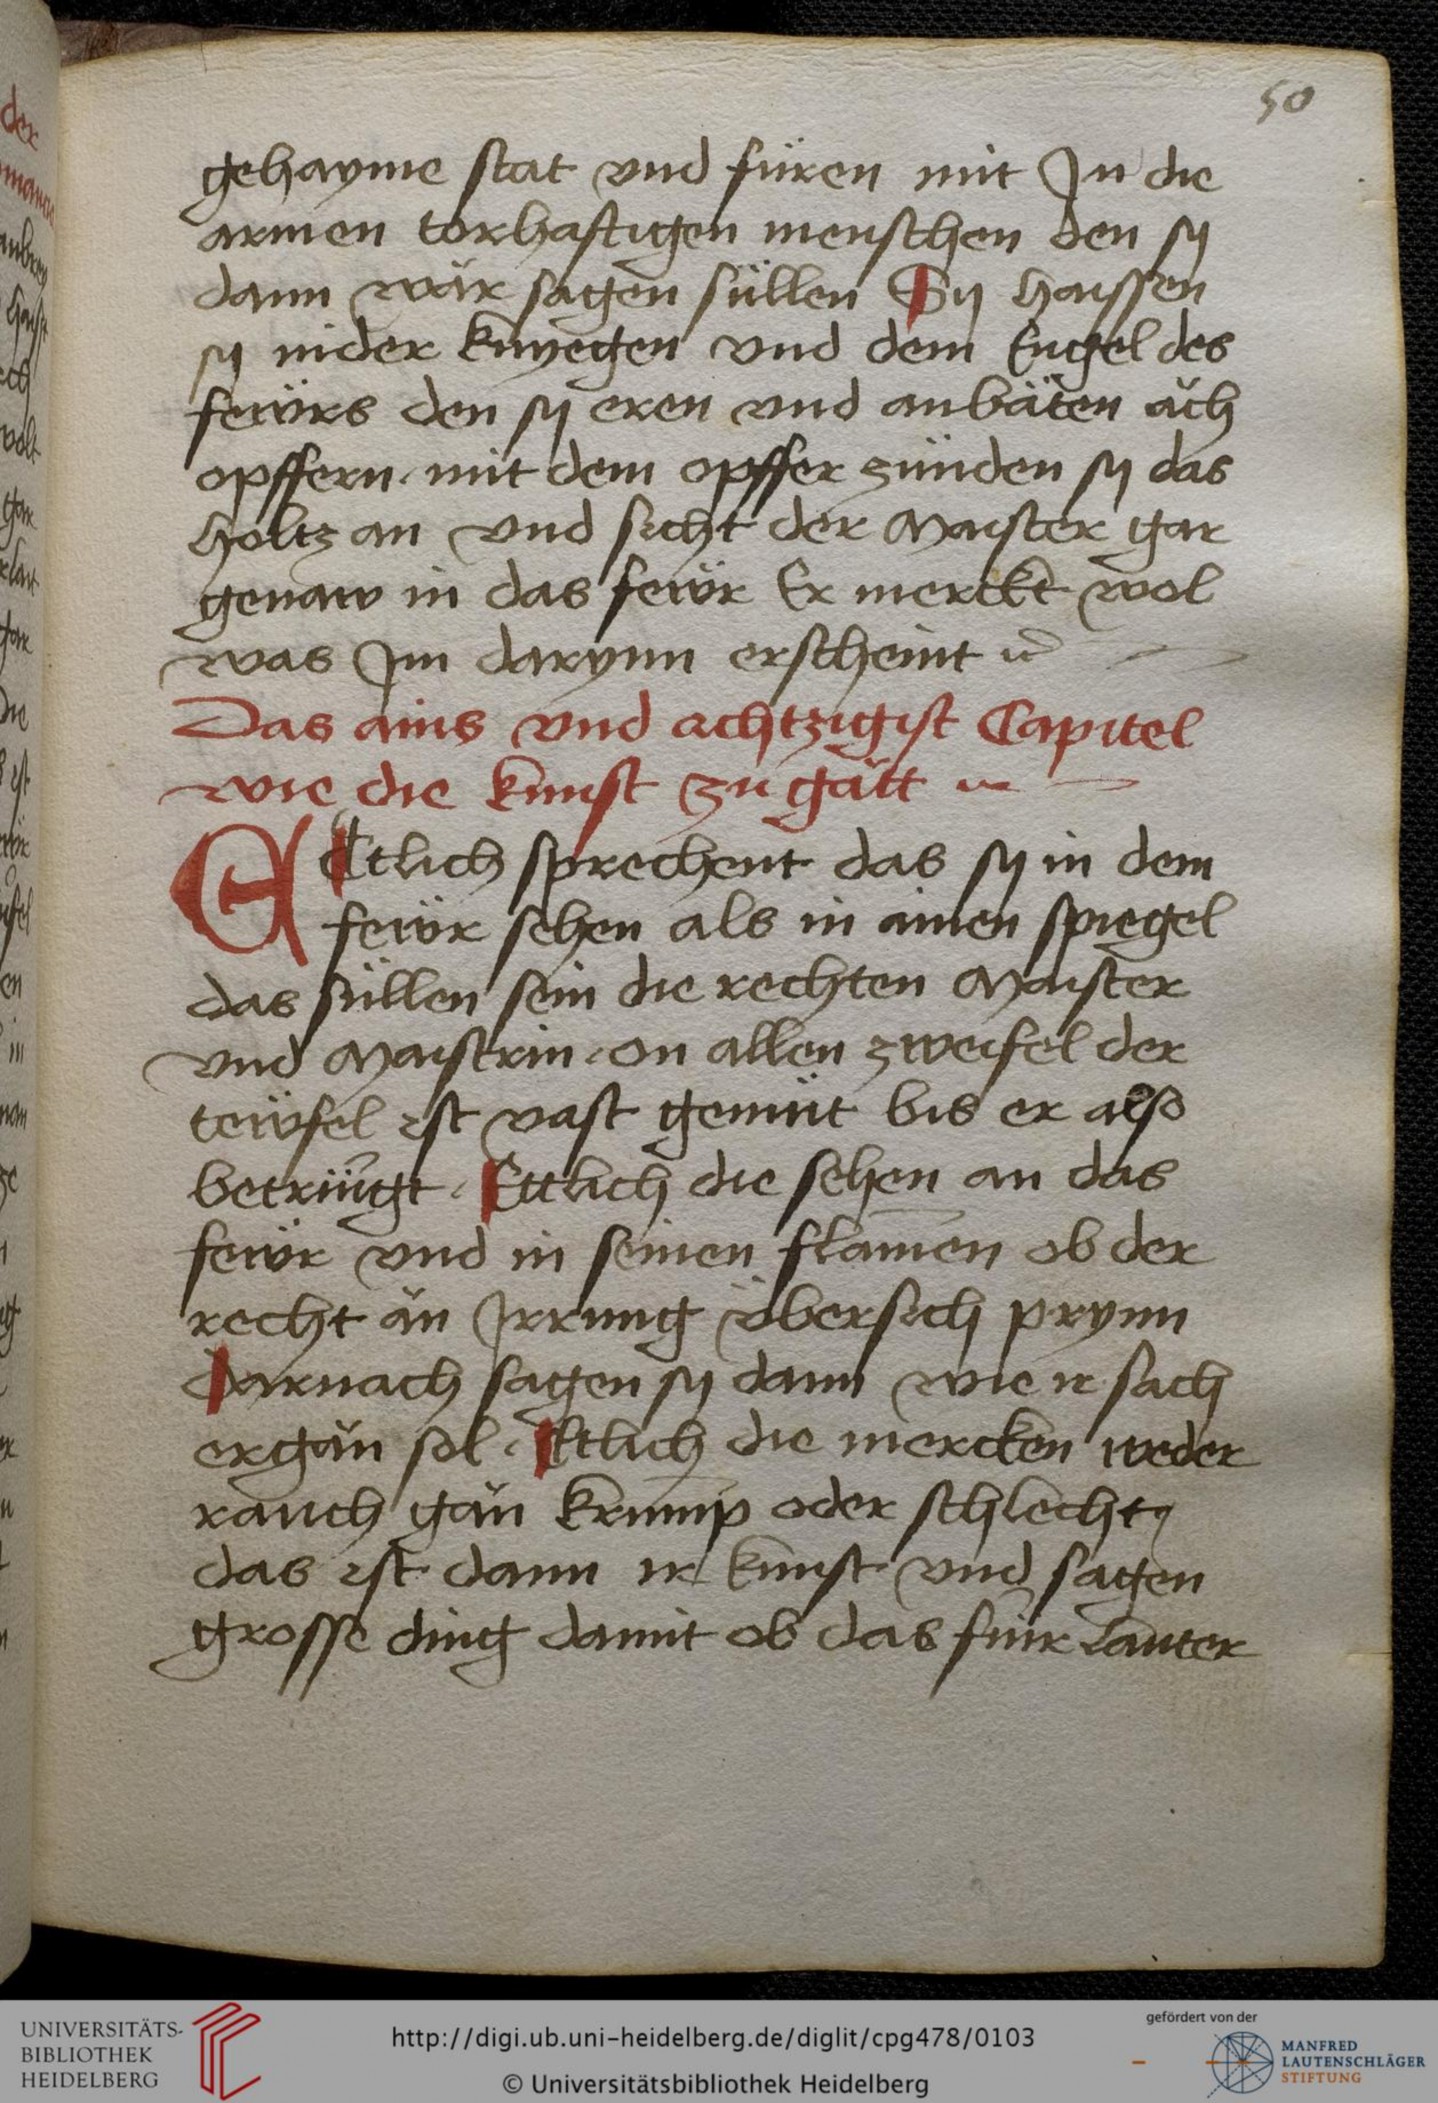 50
gehayme stat vnd füren mit Jn die
armen torhaftigen menschen den sy
dann wär sagen süllen Sy haissen
sy nider knyegen vnd dem Engel des
fewrs den sy eren vnd anbäten ăch
opffern mit dem opffer zünden sy das
holtz an vnd sicht der Maister gar
genaw in das fewr Er merckt wol
was Jm darynn erscheint ꝛc
Das ains vnd achtzigist Capitel
wie die kunst zu gătt
EEtlich sprechent das sy in dem
fewr sehen als in ainen spiegel
das süllen sein die rechten Maister
vnd Maistrin on allen zweifel der
tewfel ist vast gemüt bis er also
betrüngt Ettlich die sehen an das
fewr vnd in seinen flamen ob der
recht ăn Jrrung übersich prynn
Darnach sagen sy dann wie ir sach
ergăn sol Etlich die mercken weder
rauch găn krump oder schlecht
das ist dann ir kunst vnd sagen
grosse ding damit ob das für lauter
der
UNIVERSITÄTS-
BIBLIOTHEK
HEIDELBERG
http://digi.ub.uni-heidelberg.de/diglit/cpg478/0103
© Universitätsbibliothek Heidelberg
gefördert von der
MANFRED
LAUTENSCHLÄGER
STIFTUNG